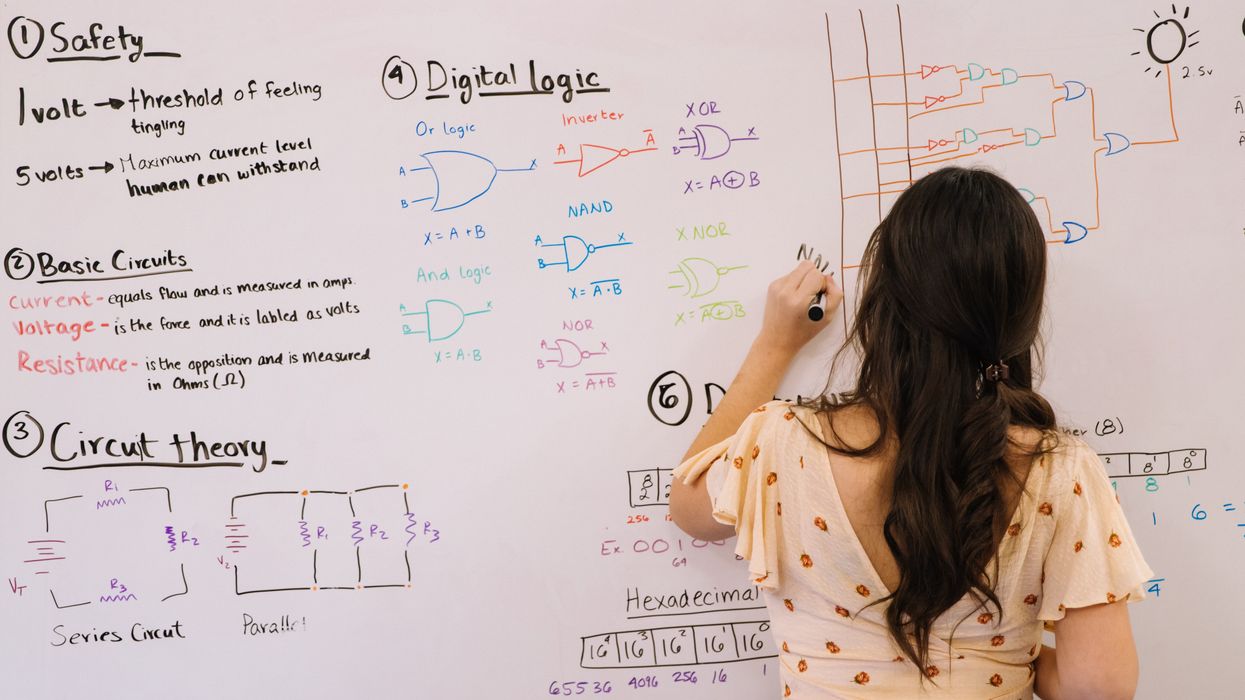 ① Safety
1 volt → threshold of feeling
tingling
5 volts → Maximum current level
human can withstand
② Basic Circuits
Current - equals flow and is measured in amps.
Voltage - is the force and it is labled as volts
Resistance - is the opposition and is measured
in Ohms (Ω)
③ Circuit theory
R1
R2
R3
VT
Series Circut
R1
R2
R3
V2
Parallel
④ Digital logic
Or logic
A
B
X
X = A + B
Inverter
A
A̅
XOR
A
B
X
X = A ⊕ B
And logic
A
B
X
X = A · B
NAND
A
B
X
X = A̅ ·̅ B̅
NOR
A
B
X
X = A̅ +̅ B̅
X NOR
X = A̅ ⊕̅ B̅
2.5v
(8)
8¹
8⁰
8
1
1
6 =
4
256
Ex. 001
64
Hexadecimal
16⁴ 16³ 16² 16¹ 16⁰
65536 4096 256 16 1